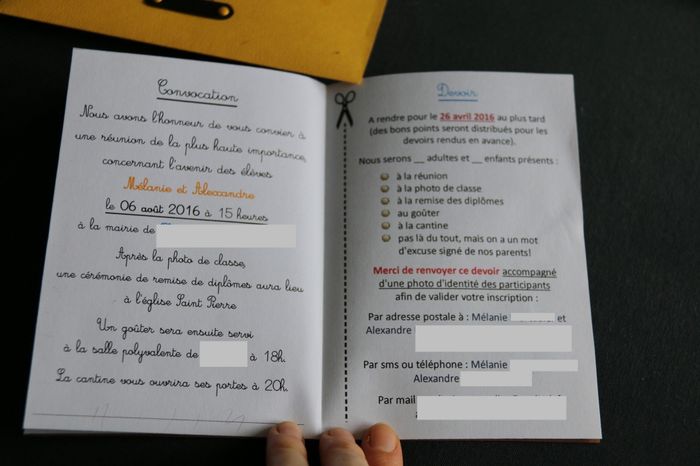 Convocation
Nous avons l'honneur de vous convier à
une réunion de la plus haute importance,
concernant l'avenir des élèves
Mélanie et Alexandre
le 06 août 2016 à 15 heures
à la mairie de
Après la photo de classe,
une cérémonie de remise de diplômes aura lieu
à l'église Saint Pierre
Un goûter sera ensuite servi
à la salle polyvalente de à 18h.
La cantine vous ouvrira ses portes à 20h.
Devoir
A rendre pour le 26 avril 2016 au plus tard
(des bons points seront distribués pour les
devoirs rendus en avance).
Nous serons __ adultes et __ enfants présents :
à la réunion
à la photo de classe
à la remise des diplômes
au goûter
à la cantine
pas là du tout, mais on a un mot
d'excuse signé de nos parents!
Merci de renvoyer ce devoir accompagné
d'une photo d'identité des participants
afin de valider votre inscription :
Par adresse postale à : Mélanie et
Alexandre
Par sms ou téléphone : Mélanie
Alexandre
Par mail